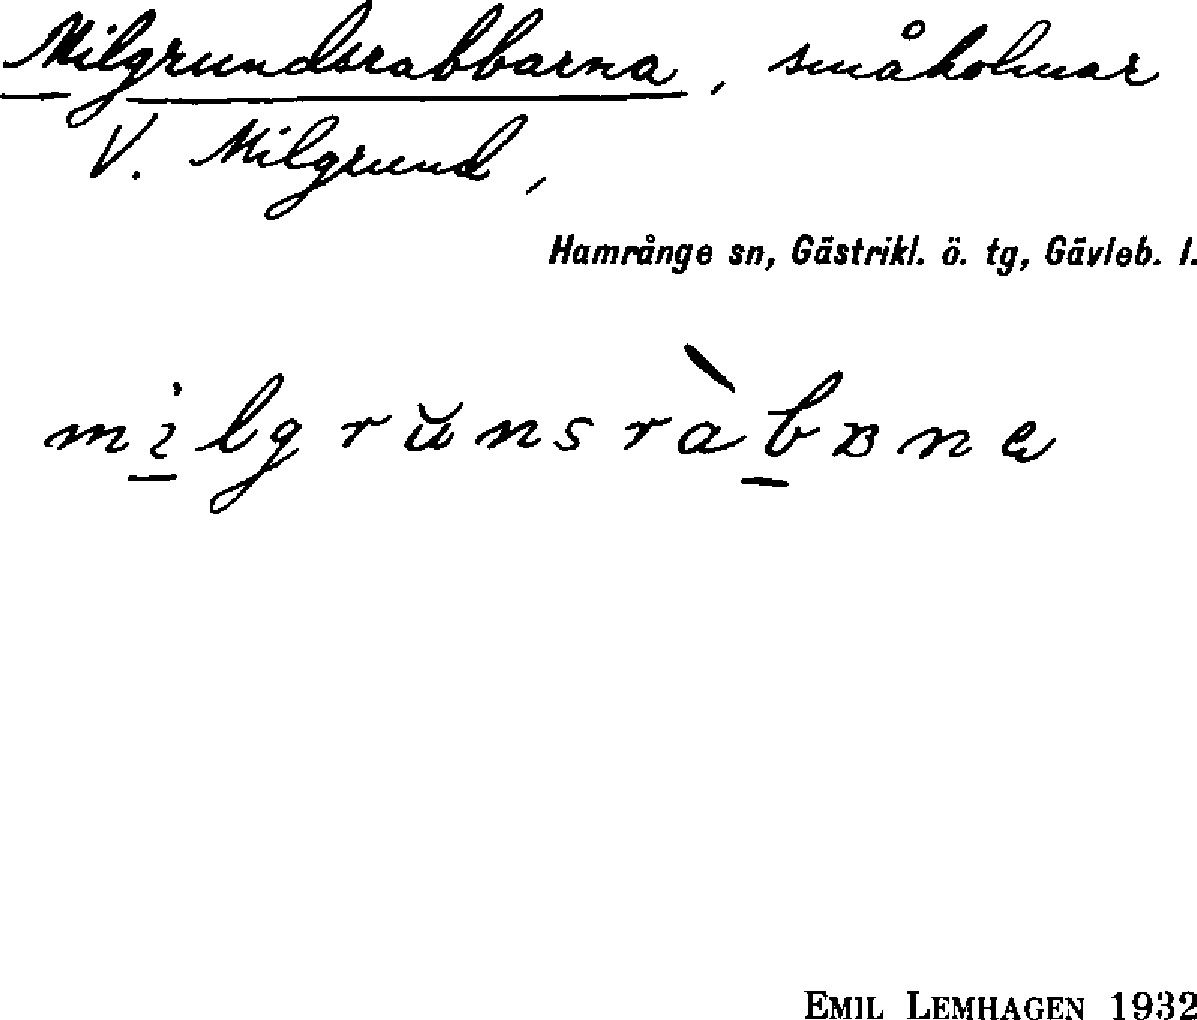 Milgrundsrabbarna, småholmar
V. Milgrund,
Hamrånge sn, Gästrikl. ö. tg, Gävleb. l.
mi̱lgrŭnsràḇʙna
EMIL LEMHAGEN 1932